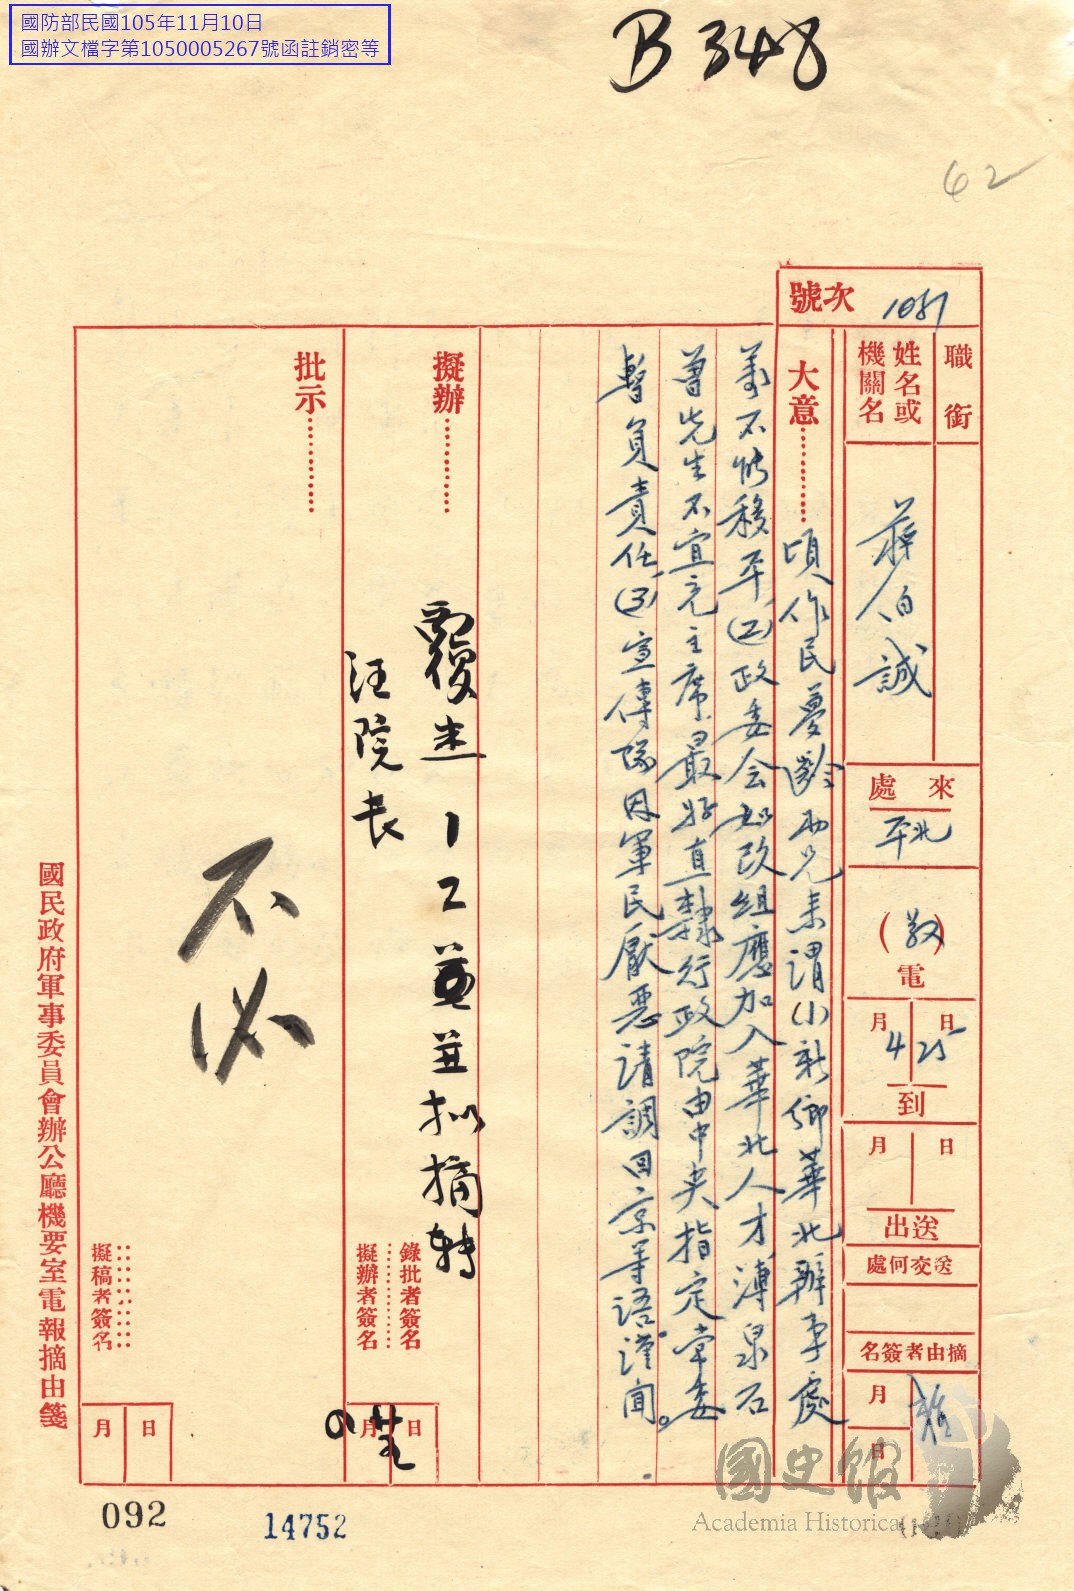 國防部民國105年11月10日
國辦文檔字第1050005267號函註銷密等
B 348
62
號次
職銜
姓名或機關名
蔣伯誠
來處
北平
(敬)電
4月25日到
月 日送出
送交何處
摘由者簽名
月 日
大意
頃作民憂齡兩兄來謂(1)新鄉華北辦事處
萬不能移平(2)政委会如改組應加入華北人才溥泉石
曾先生不宜充主席最好直隸行政院由中央指定常委
暫負責任(3)宣傳隊因軍民厭惡請調回京等語謹聞。
擬辦
覆悉 1 2 並擬摘轉
汪院長
錄批者簽名
擬辦者簽名
月 日
批示
不必
擬稿者簽名
月 日
國民政府軍事委員會辦公廳機要室電報摘由箋
092
14752
國史館
Academia Historica